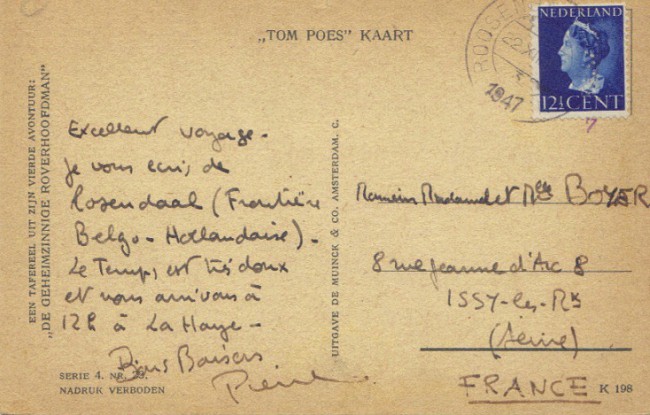 „TOM POES” KAART
NEDERLAND
12½ CENT
1947
7
EEN TAFEREEL UIT ZIJN VIERDE AVONTUUR:
„DE GEHEIMZINNIGE ROVERHOOFDMAN”
Excellent voyage -
Je vous écris de
Rosendaal (Frontière
Belgo-Hollandaise) -
Le Temps est très doux
et nous arrivons à
12h à La Haye -
Bons Baisers
UITGAVE DE MUINCK & CO. AMSTERDAM. C.
Madame et Mlle BOYER
8 rue Jeanne d'Arc 8
ISSY-les-Mx
(Seine)
FRANCE
SERIE 4. NR.
NADRUK VERBODEN
K 198